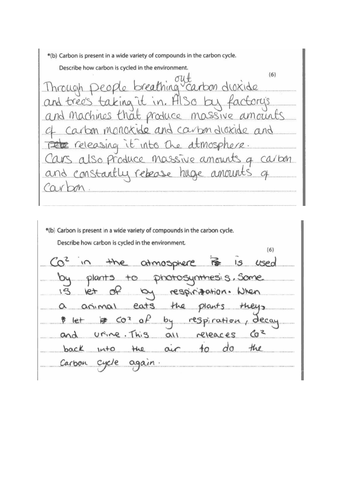 *(b) Carbon is present in a wide variety of compounds in the carbon cycle.
Describe how carbon is cycled in the environment.
(6)
Through people breathing out carbon dioxide
and trees taking it in. Also by factorys
and machines that produce massive amounts
of carbon monoxide and carbon dioxide and
releasing it into the atmosphere.
Cars also produce massive amounts of carbon
and constantly release huge amounts of
carbon.
*(b) Carbon is present in a wide variety of compounds in the carbon cycle.
Describe how carbon is cycled in the environment.
(6)
Co² in the atmosphere is used
by plants to photosynthesis. Some
is let of by respiration. When
a animal eats the plants theys
let Co² of by respiration, decay
and urine. This all releaces Co²
back into the air to do the
Carbon cycle again.